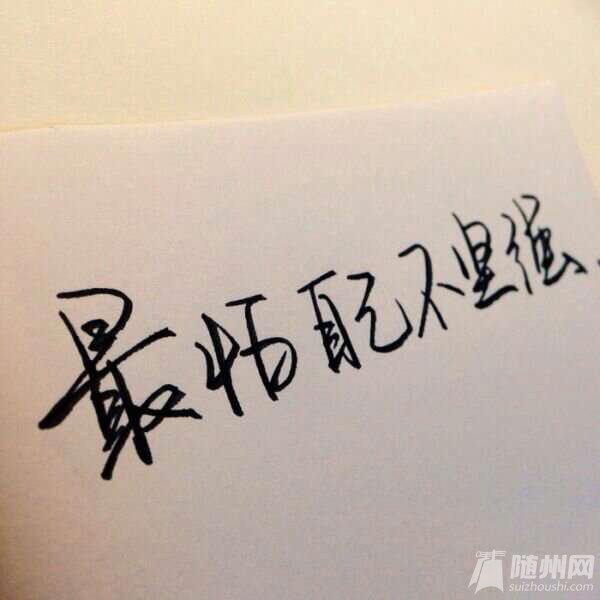 最怕自己不坚强、
随州网
suizhoushi.com